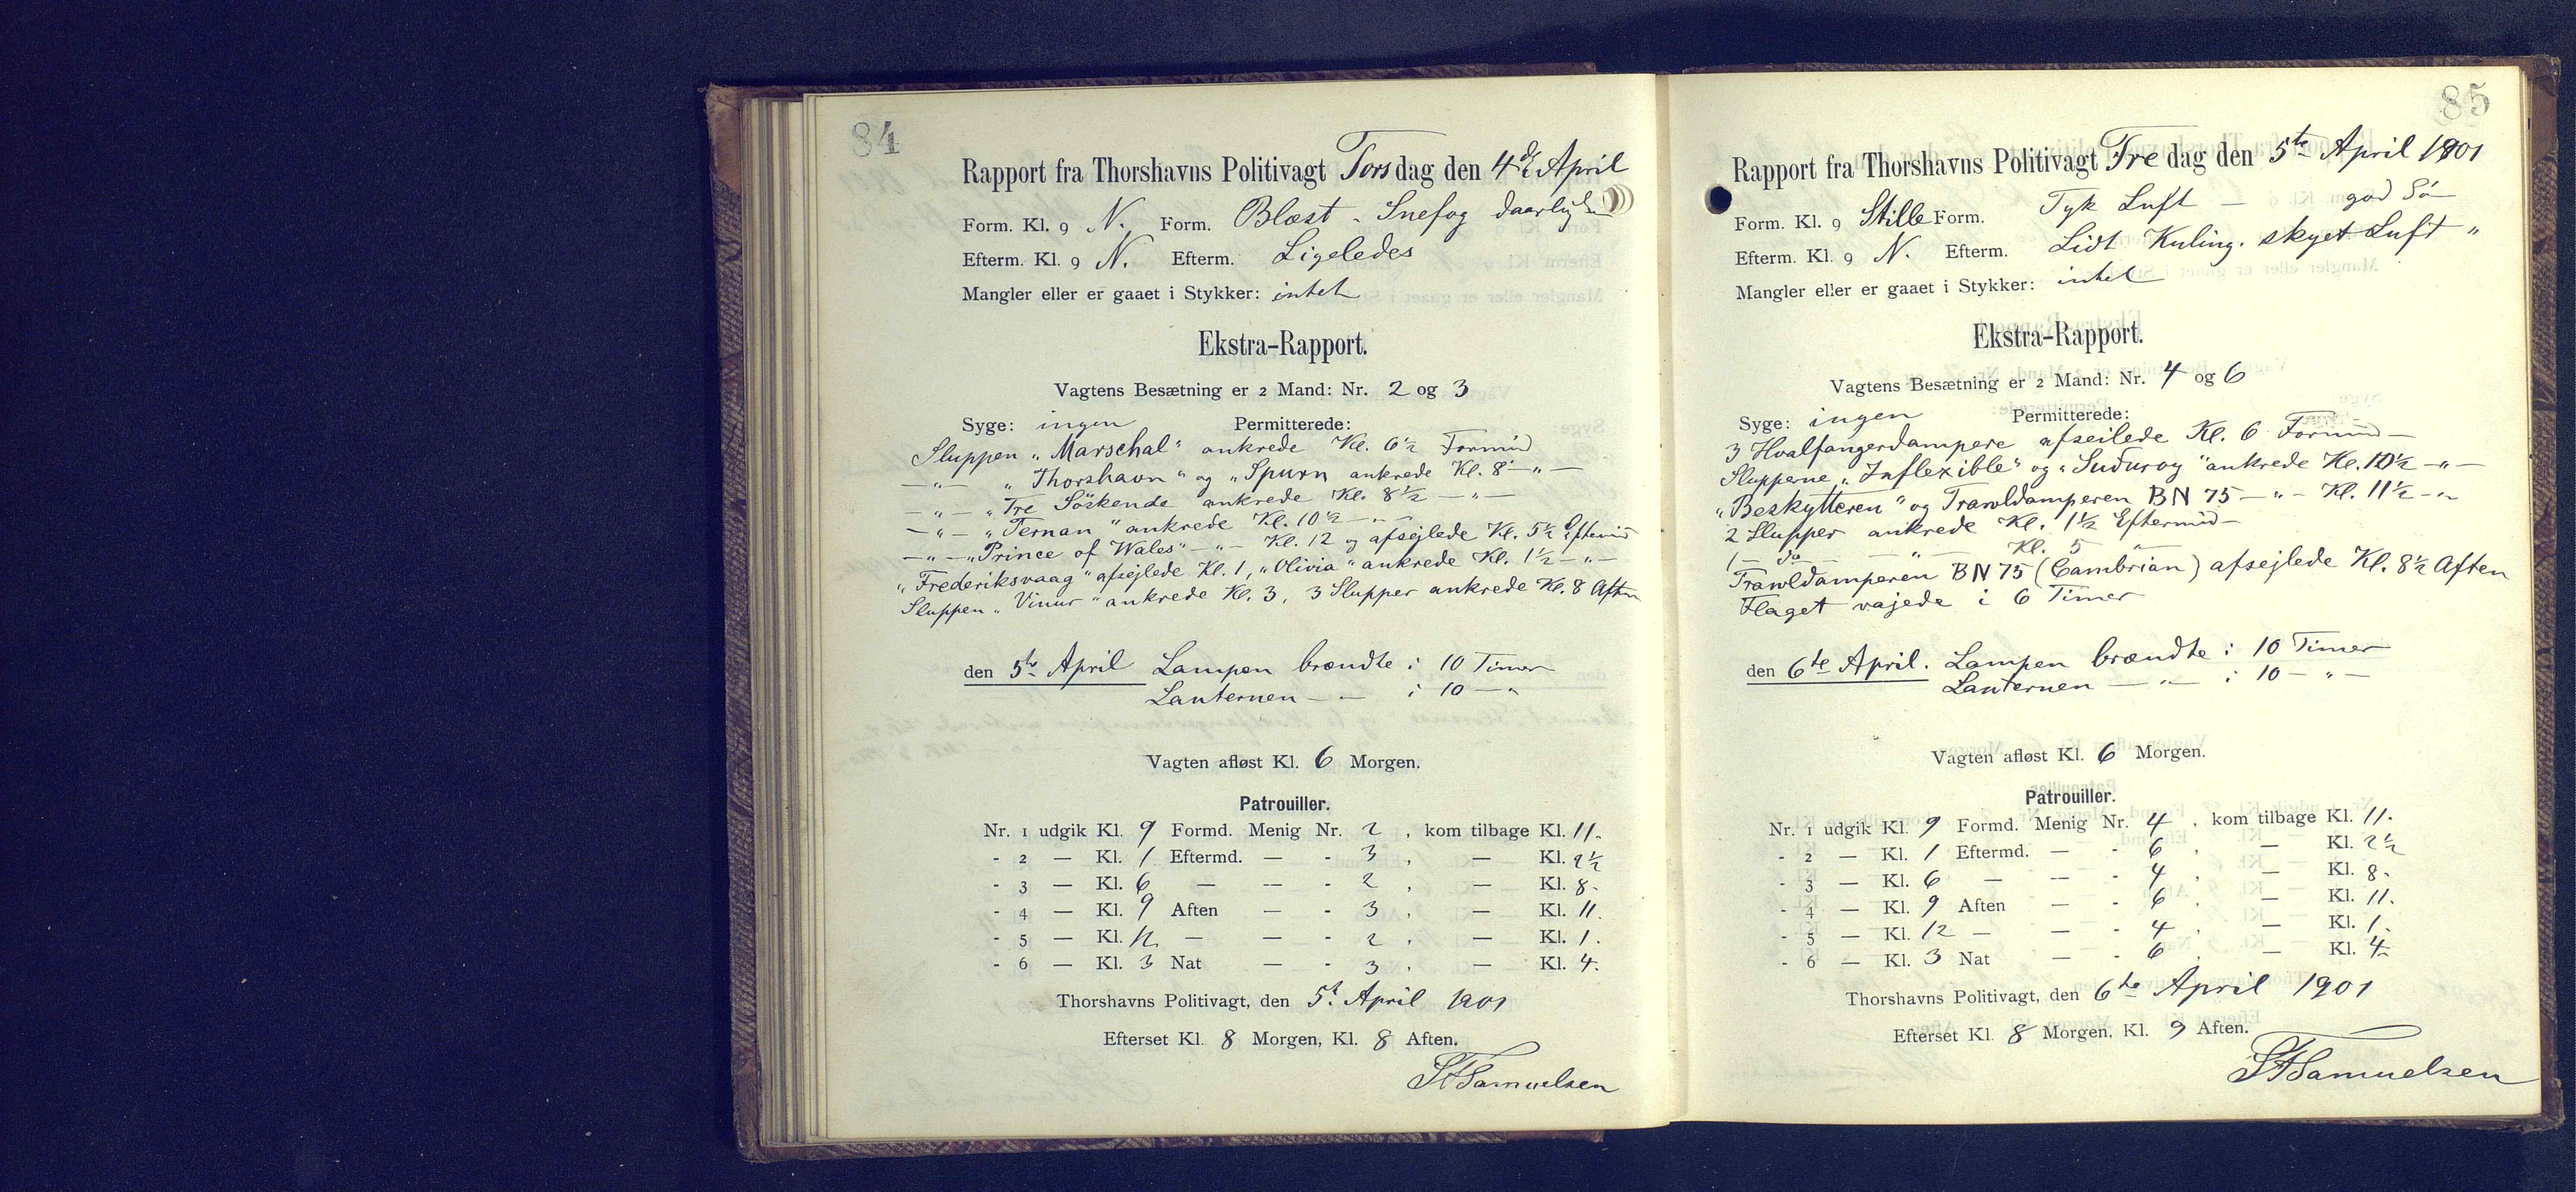 84
Rapport fra Thorshavns Politivagt Torsdag den 4de April
Form. Kl. 9 N. Form. Blæst - Snefog daarlig
Efterm. Kl. 9 N. Efterm. Ligeledes
Mangler eller er gaaet i Stykker: intet
Ekstra-Rapport.
Vagtens Besætning er 2 Mand: Nr. 2 og 3
Syge: ingen Permitterede:
Sluppen „Marschal" ankrede Kl. 6½ Formid
—„— „Thorshavn" og „Spurn ankrede Kl. 8 —„—
—„— „Tre Söskende ankrede Kl. 8½ —„—
—„— „Ternan" ankrede Kl. 10½ —„—
—„— „Prince of Wales" —„— Kl. 12 og afsejlede Kl. 5½ Eftermid
„Frederiksvaag" afsejlede Kl. 1, „Olivia" ankrede Kl. 1½ —„—
Sluppen „Vinur" ankrede Kl. 3, 3 Slupper ankrede Kl. 8 Aften
den 5te April Lampen brændte i 10 Timer
Lanternen — — i 10 —„
Vagten afløst Kl. 6 Morgen.
Patrouiller.
Nr. 1 udgik Kl. 9 Formd. Menig Nr. 2, kom tilbage Kl. 11.
- 2 — Kl. 1 Eftermd. — - 3, — Kl. 2½
- 3 — Kl. 6 — — - 2, — Kl. 8.
- 4 — Kl. 9 Aften — - 3, — Kl. 11.
- 5 — Kl. 12 — — - 2, — Kl. 1.
- 6 — Kl. 3 Nat — - 3, — Kl. 4.
Thorshavns Politivagt, den 5t. April 1901
Efterset Kl. 8 Morgen, Kl. 8 Aften.
SFSamuelsen
85
Rapport fra Thorshavns Politivagt Fredag den 5te April 1901
Form. Kl. 9 Stille Form. Tyk Luft — god Sö
Efterm. Kl. 9 N. Efterm. Lidt Kuling. skyet Luft „
Mangler eller er gaaet i Stykker: intet
Ekstra-Rapport.
Vagtens Besætning er 2 Mand: Nr. 4 og 6
Syge: ingen Permitterede:
3 Hvalfangerdampere afseilede Kl. 6 Formid—
Slupperne „Inflexible" og „Sudurog" ankrede Kl. 10½ —„—
„Beskytteren" og Trawldamperen BN 75 —„— Kl. 11½ —„
2 Slupper ankrede Kl. 1½ Eftermid—
1 — do — „ — Kl. 5 —„—
Trawldamperen BN 75 (Cambrian) afsejlede Kl. 8½ Aften
Flaget vajede i 6 Timer
den 6te April. Lampen brændte i 10 Timer
Lanternen —„— i 10 —„—
Vagten afløst Kl. 6 Morgen.
Patrouiller.
Nr. 1 udgik Kl. 9 Formd. Menig Nr. 4, kom tilbage Kl. 11.
- 2 — Kl. 1 Eftermd. — - 6, — Kl. 2½
- 3 — Kl. 6 — — - 4, — Kl. 8.
- 4 — Kl. 9 Aften — - 6, — Kl. 11.
- 5 — Kl. 12 — — - 4, — Kl. 1.
- 6 — Kl. 3 Nat — - 6, — Kl. 4.
Thorshavns Politivagt, den 6te April 1901
Efterset Kl. 8 Morgen, Kl. 9 Aften.
SFSamuelsen